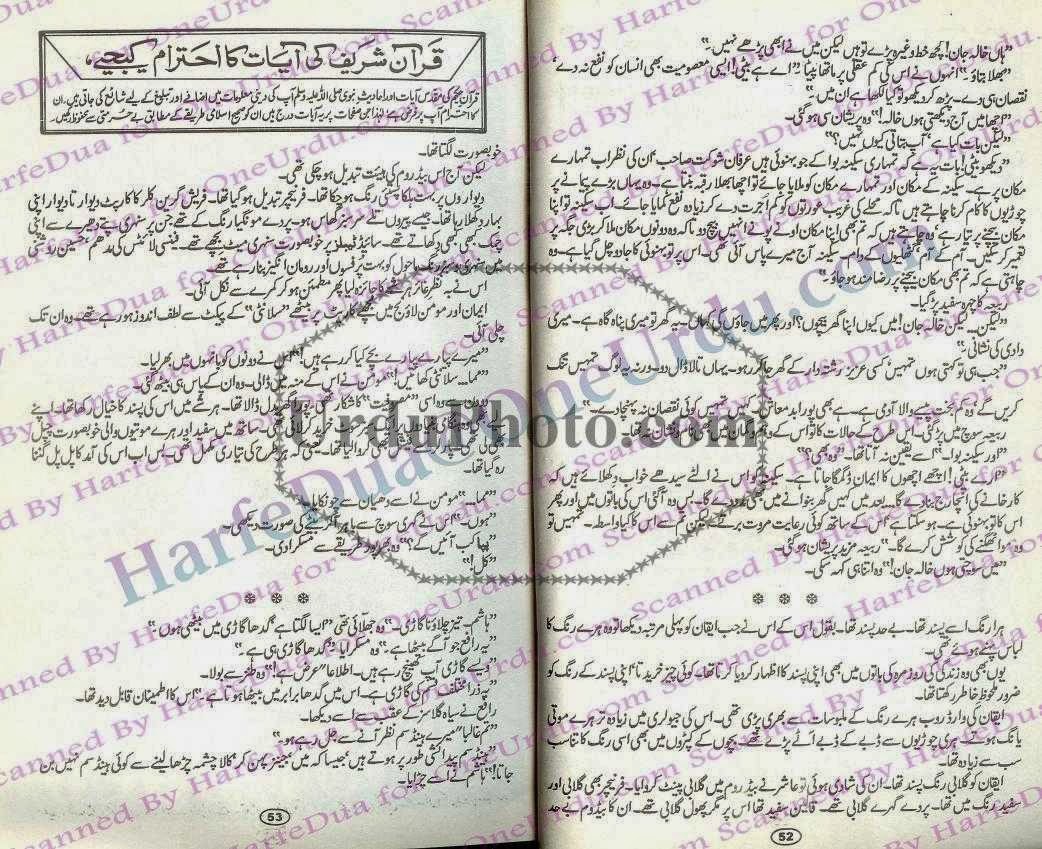 "ہاں خالہ جان! کچھ خط وغیرہ پڑے تو ہیں لیکن میں نے ابھی پڑھے نہیں۔"
"بھلا بتاؤ۔" انہوں نے اس کی کم عقلی پر ماتھا پیٹا "اے ہے بیٹی! ایسی معصومیت بھی انسان کو نفع نہ دے'
نقصان ہی دے۔ پڑھ کر دیکھو تو کیا لکھا ہے ان میں۔"
"اچھا میں آج دیکھتی ہوں خالہ!" وہ پریشان سی ہو گئی۔
"لیکن بات کیا ہے' آپ بتاتی کیوں نہیں؟"
"دیکھو بیٹی! بات یہ ہے کہ تمہاری سکینہ بوا کے جو بہنوئی ہیں عرفان شوکت صاحب' اُن کی نظر اب تمہارے
مکان پر ہے۔ سکینہ کے مکان اور تمہارے مکان کو ملایا جائے تو اچھا بھلا رقبہ بنتا ہے۔ وہ یہاں بڑے پیمانے پر
چوڑیوں کا کام کرنا چاہتے ہیں تاکہ محلے کی غریب عورتوں کو کم اجرت دے کر زیادہ نفع کمایا جائے۔ اب سکینہ تو اپنا
مکان بیچنے پر تیار ہے وہ چاہتے ہیں کہ تم بھی اپنا مکان اونے پونے انہیں بیچ دو تاکہ وہ دونوں مکان ملا کر بڑی جگہ پر
تعمیر کر سکیں۔ آم کے آم' گٹھلیوں کے دام۔ سکینہ آج میرے پاس آئی تھی۔ اس پر تو بہنوئی کا جادو چل گیا ہے۔ وہ
چاہتی ہے کہ تم بھی مکان بیچنے پر رضامند ہو جاؤ۔"
ربیعہ کا چہرہ سفید پڑ گیا۔
"لیکن... لیکن خالہ جان! میں کیوں اپنا گھر بیچوں؟ اور پھر میں جاؤں گی کہاں۔ یہ گھر تو میری پناہ گاہ ہے۔ میری
دادی کی نشانی۔"
"جب ہی تو کہتی ہوں تمہیں' کسی عزیز رشتہ دار کے گھر جا کر رہو۔ یہاں تالا ڈال دو۔ ورنہ یہ لوگ تمہیں تنگ
کریں گے وہ کم بخت پیسے والا آدمی ہے۔ ہے بھی پورا بدمعاش۔ کہیں تمہیں کوئی نقصان نہ پہنچا دے۔"
ربیعہ سوچ میں پڑ گئی۔ اس طرح کے حالات کا تو اس کے
"اور سکینہ بوا۔" اسے یقین نہ آتا تھا۔ "وہ بھی؟"
"ارے بیٹی! اچھے اچھوں کا ایمان ڈگمگا جاتا ہے۔ سکینہ کو اس نے الٹے سیدھے خواب دکھلائے ہیں کہ
کارخانے کی انچارج بنا دے گا۔ بعد میں کہیں گھر بنوانے میں بھی مدد دے گا۔ بس وہ آ گئی اس کی باتوں میں اور پھر
اس کا تو بہنوئی ہے۔ ہو سکتا ہے اس کے ساتھ کوئی رعایت مروت برتے لیکن تم سے اس کا کیا واسطہ۔ تمہیں تو
وہ سوا ٹھگنے کی کوشش کرے گا۔" ربیعہ مزید پریشان ہو گئی۔
"میں سوچتی ہوں خالہ جان!" وہ اتنا ہی کہہ سکی۔
❄ ❄ ❄
ہرا رنگ اسے پسند تھا۔ بے حد پسند تھا۔ بقول اس کے اس نے جب ایقان کو پہلی مرتبہ دیکھا تو وہ ہرے رنگ کا
لباس پہنے ہوئے تھی۔
یوں بھی وہ زندگی کی روزمرہ کی باتوں میں بھی اپنی پسند کا اظہار کر دیا کرتا تھا۔ کوئی چیز خریدتا تو اپنی پسند کے رنگ کو
ضرور ملحوظِ خاطر رکھتا تھا۔
ایقان کی وارڈ روب ہرے رنگ کے ملبوسات سے بھری پڑی تھی۔ اس کی جیولری میں زیادہ تر ہرے موتی
یا نگ ہوتے۔ ہری چوڑیوں سے ڈبے کے ڈبے اٹے پڑے تھے۔ بچوں کے کپڑوں میں بھی اسی رنگ کا تناسب
سب سے زیادہ تھا۔
ایقان کو گلابی رنگ پسند تھا۔ ان کی شادی ہوئی تو عاشر نے بیڈ روم میں گلابی پینٹ کروایا۔ فرنیچر بھی گلابی اور
سفید رنگ میں تھا۔ پردے گہرے گلابی تھے۔ قالین سفید تھا اس پر مگر پھول گلابی تھے۔ ان کا بیڈ روم بے حد
52
قرآن شریف کی آیات کا احترام کیجیے،
قرآن حکیم کی مقدس آیات اور احادیث نبوی صلی اللہ علیہ وسلم آپ کی دینی معلومات میں اضافے اور تبلیغ کے لیے شائع کی جاتی ہیں۔ ان
کا احترام آپ پر فرض ہے لہٰذا جن صفحات پر یہ آیات درج ہیں ان کو صحیح اسلامی طریقے کے مطابق بے حرمتی سے محفوظ رکھیں۔
خوبصورت لگتا تھا۔
لیکن آج اس بیڈ روم کی ہیئت تبدیل ہو چکی تھی۔
دیواروں پر بہت ہلکا پستئی رنگ ہو چکا تھا۔ فرنیچر تبدیل ہو گیا تھا۔ فریش گرین کلر کا کارپٹ دیوار تا دیوار اپنی
بہار دکھلا رہا تھا۔ جیسے پیروں تلے سرسبز گھاس ہو۔ پردے مونگیا رنگ کے تھے جن پر سنہری پتے دھیرے سے اپنی
چمک بھی دکھاتے تھے۔ سائیڈ ٹیبلز پر خوبصورت سنہری میٹ بچھے تھے۔ فینسی لائٹس کی مدھم' حسین روشنی
میں سنہری و سبز رنگ ماحول کو بہت پُرفسوں اور رومان انگیز بنا رہے تھے۔
اس نے بہ نظرِ غائر ہر شے کا جائزہ لیا پھر مطمئن ہو کر کمرے سے نکل آئی۔
ایمان اور مومن لاؤنج میں بچھے کارپٹ پر بیٹھے "سلانٹی" کے پیکٹ سے لطف اندوز ہو رہے تھے۔ وہ ان تک
چلی آئی۔
"میرے پیارے پیارے بچے کیا کر رہے ہیں!" اس نے دونوں کو بانہوں میں بھر لیا۔
"مما... سلانٹی کھائیں!" مومن نے اس کے منہ میں ڈالی۔ وہ ان کے پاس ہی بیٹھ گئی۔
ڈالا تھا۔ ہر شے میں اس کی پسند کا خیال رکھا تھا۔ اپنے
ساتھ میں سفید اور ہرے موتیوں والی خوبصورت چپل
ہر طرح کی تیاری مکمل تھی۔ بس اب اس کی آمد کا پل پل گننا
رہ گیا تھا۔
"مما..." مومن نے اسے دھیان سے چونکایا۔
"ہوں۔" اس نے گہری سوچ سے باہر آ کر بیٹے کی صورت دیکھی۔
"پپا کب آئیں گے؟" وہ بھرپور طریقے سے مسکرا دی۔
"کل!"
❄ ❄ ❄
"ہاشم۔ تیز چلاؤ نا گاڑی۔" وہ جھلائی تھی "ایسا لگتا ہے' گدھا گاڑی میں بیٹھی ہوں۔"
"یہ رافع جو آگے بیٹھا ہے۔" وہ مسکرایا "گدھا گاڑی ہی ہے۔"
"ویسے گاڑی آپ کھینچ رہے ہیں۔ اطلاعاً عرض ہے!" وہ طنز سے بولا۔
"یہ ذرا مختلف قسم کی گاڑی ہے۔ اس میں گدھا برابر میں بیٹھا ہوتا ہے۔" اس کا اطمینان قابل دید تھا۔
رافع نے سیاہ گلاسز کے عقب سے اسے دیکھا۔
"تم غالباً میرے ہینڈسم نظر آنے سے جل رہے ہو۔"
"ہینڈسم پیدائشی طور پر ہوتے ہیں جیسا کہ میں' جینز پہن کر کالا چشمہ چڑھا لینے سے کوئی ہینڈسم نہیں بن
جاتا!" ہاشم نے اسے چڑایا۔
53
UrduPhoto.com
HarfeDua@OneUrdu.com
Scanned By HarfeDua for OneUrdu.com